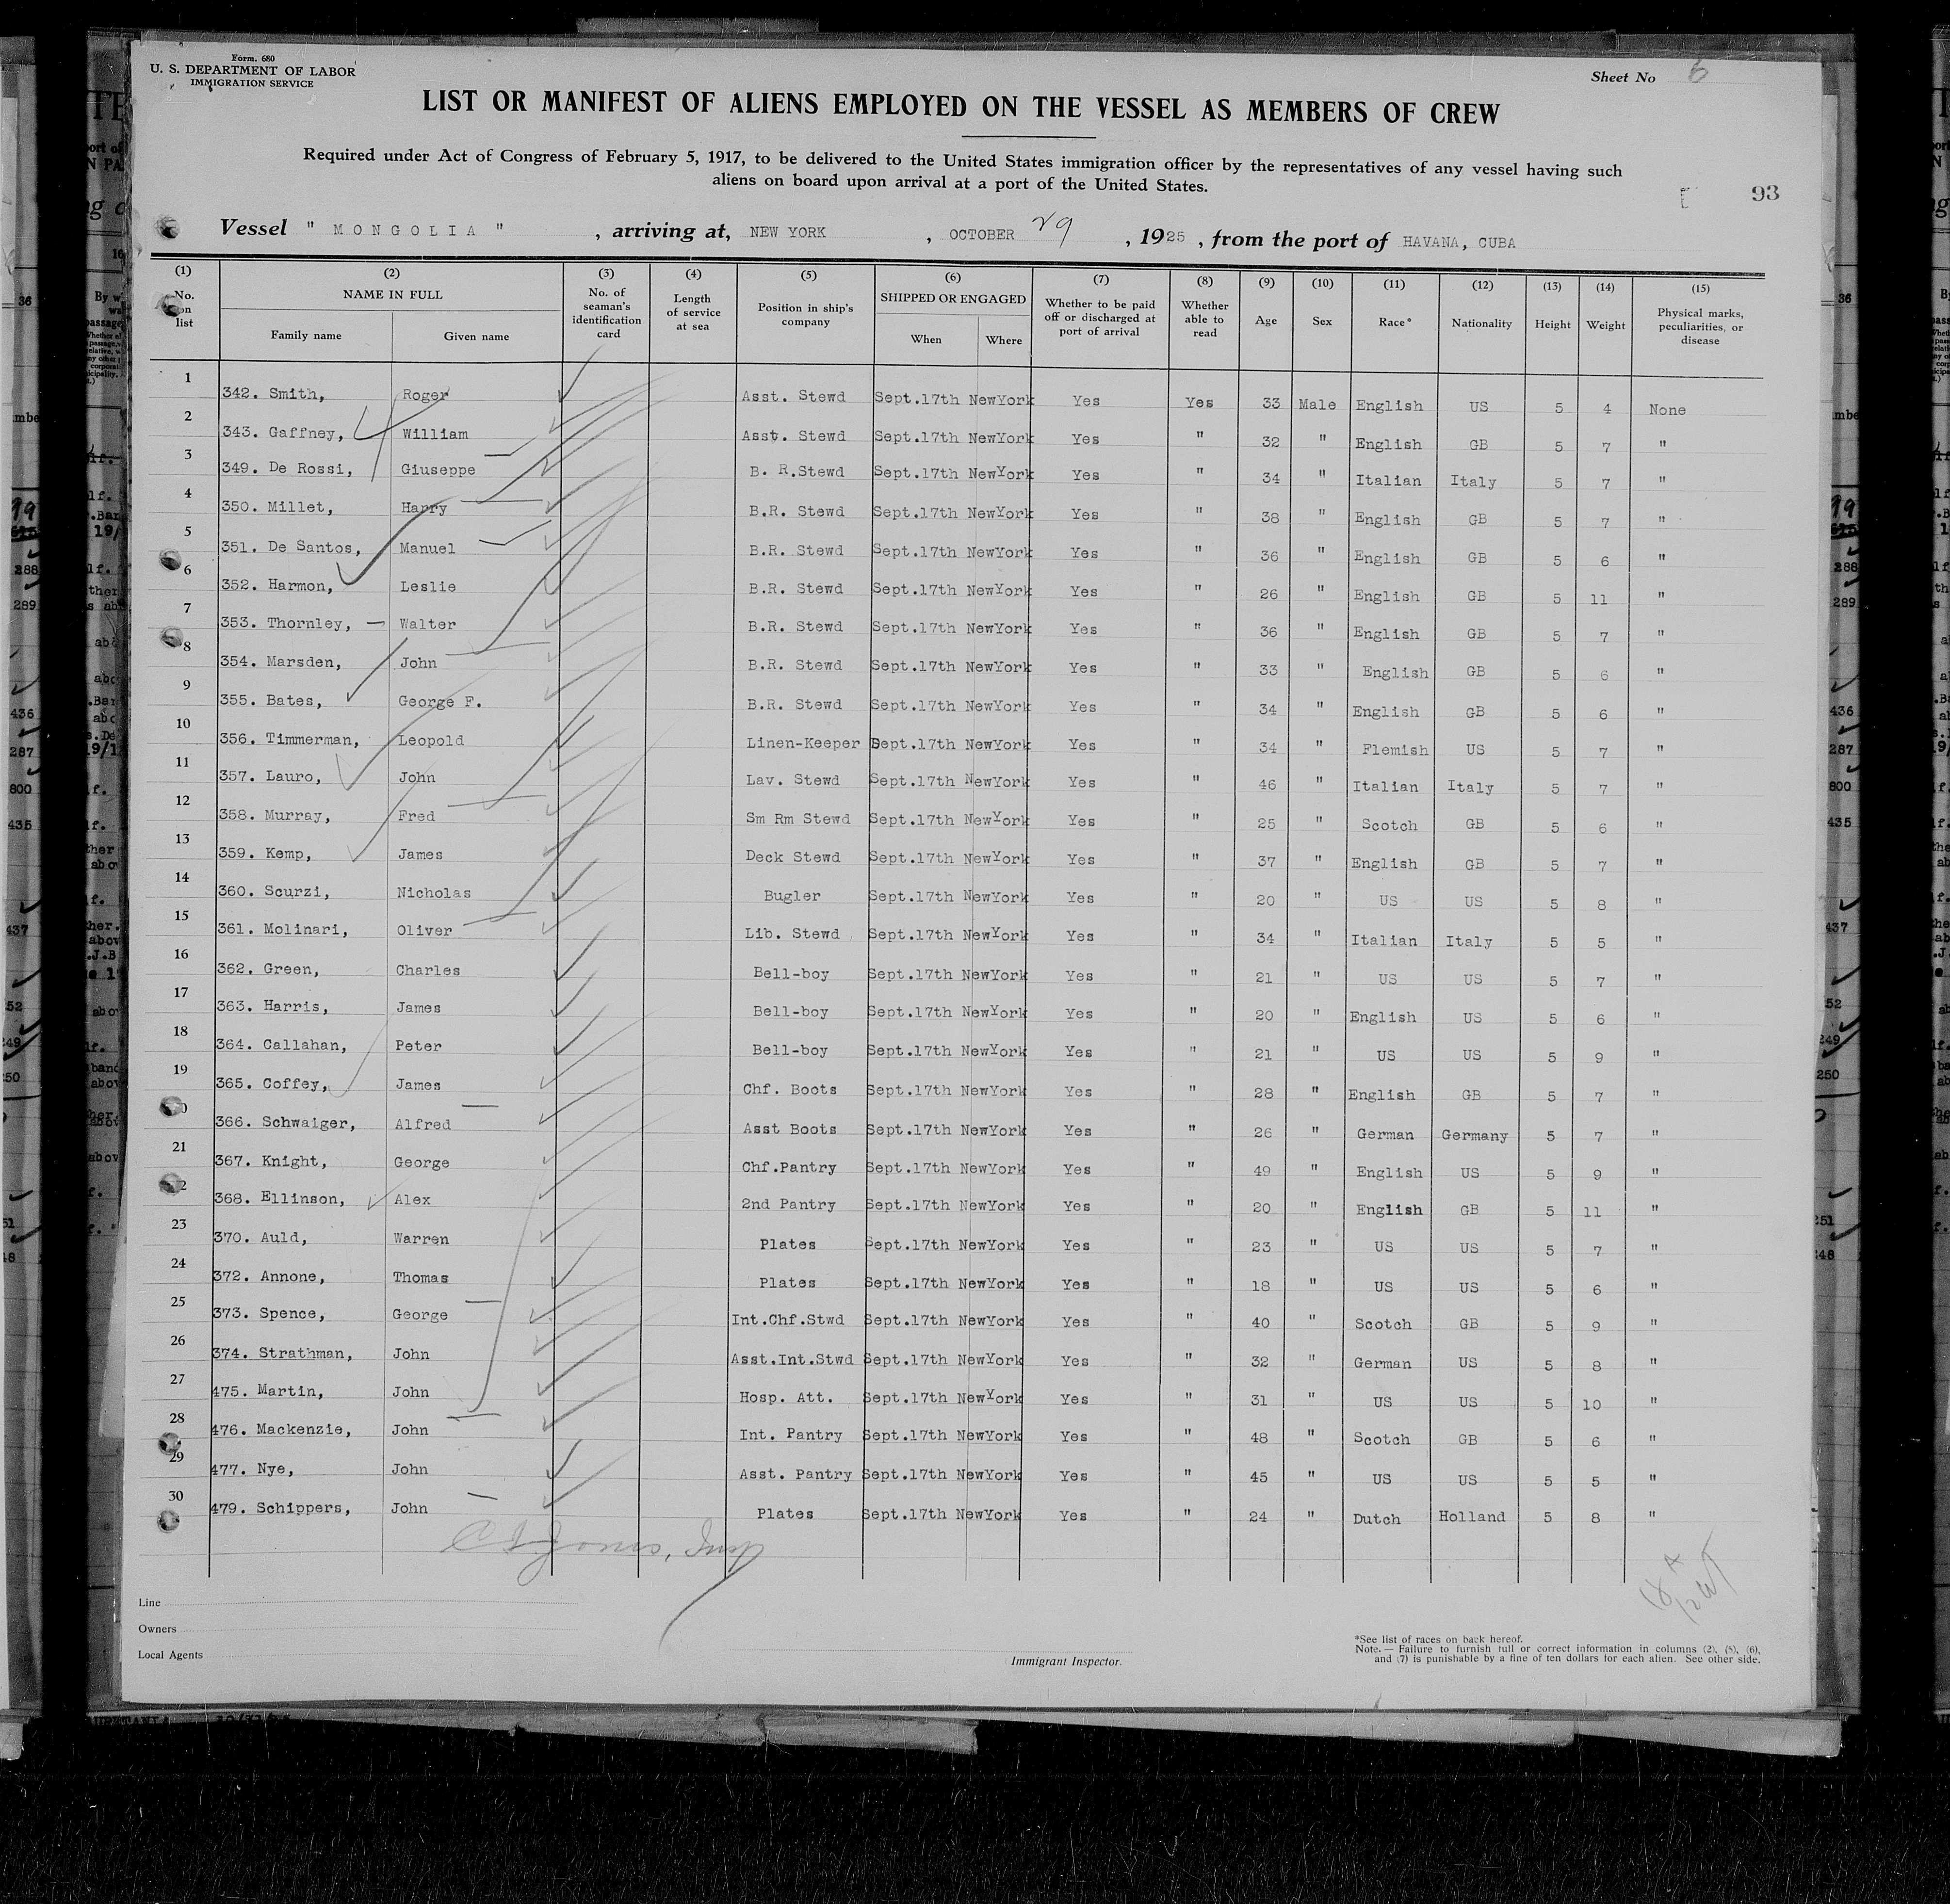 Form. 680
U. S. DEPARTMENT OF LABOR
IMMIGRATION SERVICE
Sheet No 6
LIST OR MANIFEST OF ALIENS EMPLOYED ON THE VESSEL AS MEMBERS OF CREW
Required under Act of Congress of February 5, 1917, to be delivered to the United States immigration officer by the representatives of any vessel having such
aliens on board upon arrival at a port of the United States.
93
Vessel " MONGOLIA " , arriving at, NEW YORK , OCTOBER 29 , 1925 , from the port of HAVANA, CUBA
(1) (2) (3) (4) (5) (6) (7) (8) (9) (10) (11) (12) (13) (14) (15)
No. on list NAME IN FULL Family name Given name No. of seaman's identification card Length of service at sea Position in ship's company SHIPPED OR ENGAGED When Where Whether to be paid off or discharged at port of arrival Whether able to read Age Sex Race* Nationality Height Weight Physical marks, peculiarities, or disease
1 342. Smith, Roger Asst. Stewd Sept.17th NewYork Yes Yes 33 Male English US 5 4 None
2 343. Gaffney, William Asst. Stewd Sept.17th NewYork Yes " 32 " English GB 5 7 "
3 349. De Rossi, Giuseppe B. R.Stewd Sept.17th NewYork Yes " 34 " Italian Italy 5 7 "
4 350. Millet, Harry B.R. Stewd Sept.17th NewYork Yes " 38 " English GB 5 7 "
5 351. De Santos, Manuel B.R. Stewd Sept.17th NewYork Yes " 36 " English GB 5 6 "
6 352. Harmon, Leslie B.R. Stewd Sept.17th NewYork Yes " 26 " English GB 5 11 "
7 353. Thornley, Walter B.R. Stewd Sept.17th NewYork Yes " 36 " English GB 5 7 "
8 354. Marsden, John B.R. Stewd Sept.17th NewYork Yes " 33 " English GB 5 6 "
9 355. Bates, George F. B.R. Stewd Sept.17th NewYork Yes " 34 " English GB 5 6 "
10 356. Timmerman, Leopold Linen-Keeper Sept.17th NewYork Yes " 34 " Flemish US 5 7 "
11 357. Lauro, John Lav. Stewd Sept.17th NewYork Yes " 46 " Italian Italy 5 7 "
12 358. Murray, Fred Sm Rm Stewd Sept.17th NewYork Yes " 25 " Scotch GB 5 6 "
13 359. Kemp, James Deck Stewd Sept.17th NewYork Yes " 37 " English GB 5 7 "
14 360. Scurzi, Nicholas Bugler Sept.17th NewYork Yes " 20 " US US 5 8 "
15 361. Molinari, Oliver Lib. Stewd Sept.17th NewYork Yes " 34 " Italian Italy 5 5 "
16 362. Green, Charles Bell-boy Sept.17th NewYork Yes " 21 " US US 5 7 "
17 363. Harris, James Bell-boy Sept.17th NewYork Yes " 20 " English US 5 6 "
18 364. Callahan, Peter Bell-boy Sept.17th NewYork Yes " 21 " US US 5 9 "
19 365. Coffey, James Chf. Boots Sept.17th NewYork Yes " 28 " English GB 5 7 "
366. Schwaiger, Alfred Asst Boots Sept.17th NewYork Yes " 26 " German Germany 5 7 "
21 367. Knight, George Chf.Pantry Sept.17th NewYork Yes " 49 " English US 5 9 "
368. Ellinson, Alex 2nd Pantry Sept.17th NewYork Yes " 20 " English GB 5 11 "
23 370. Auld, Warren Plates Sept.17th NewYork Yes " 23 " US US 5 7 "
24 372. Annone, Thomas Plates Sept.17th NewYork Yes " 18 " US US 5 6 "
25 373. Spence, George Int.Chf.Stwd Sept.17th NewYork Yes " 40 " Scotch GB 5 9 "
26 374. Strathman, John Asst.Int.Stwd Sept.17th NewYork Yes " 32 " German US 5 8 "
27 475. Martin, John Hosp. Att. Sept.17th NewYork Yes " 31 " US US 5 10 "
28 476. Mackenzie, John Int. Pantry Sept.17th NewYork Yes " 48 " Scotch GB 5 6 "
29 477. Nye, John Asst. Pantry Sept.17th NewYork Yes " 45 " US US 5 5 "
30 479. Schippers, John Plates Sept.17th NewYork Yes " 24 " Dutch Holland 5 8 "
Line
Owners
Local Agents
Immigrant Inspector.
*See list of races on back hereof.
Note.— Failure to furnish full or correct information in columns (2), (5), (6),
and (7) is punishable by a fine of ten dollars for each alien. See other side.